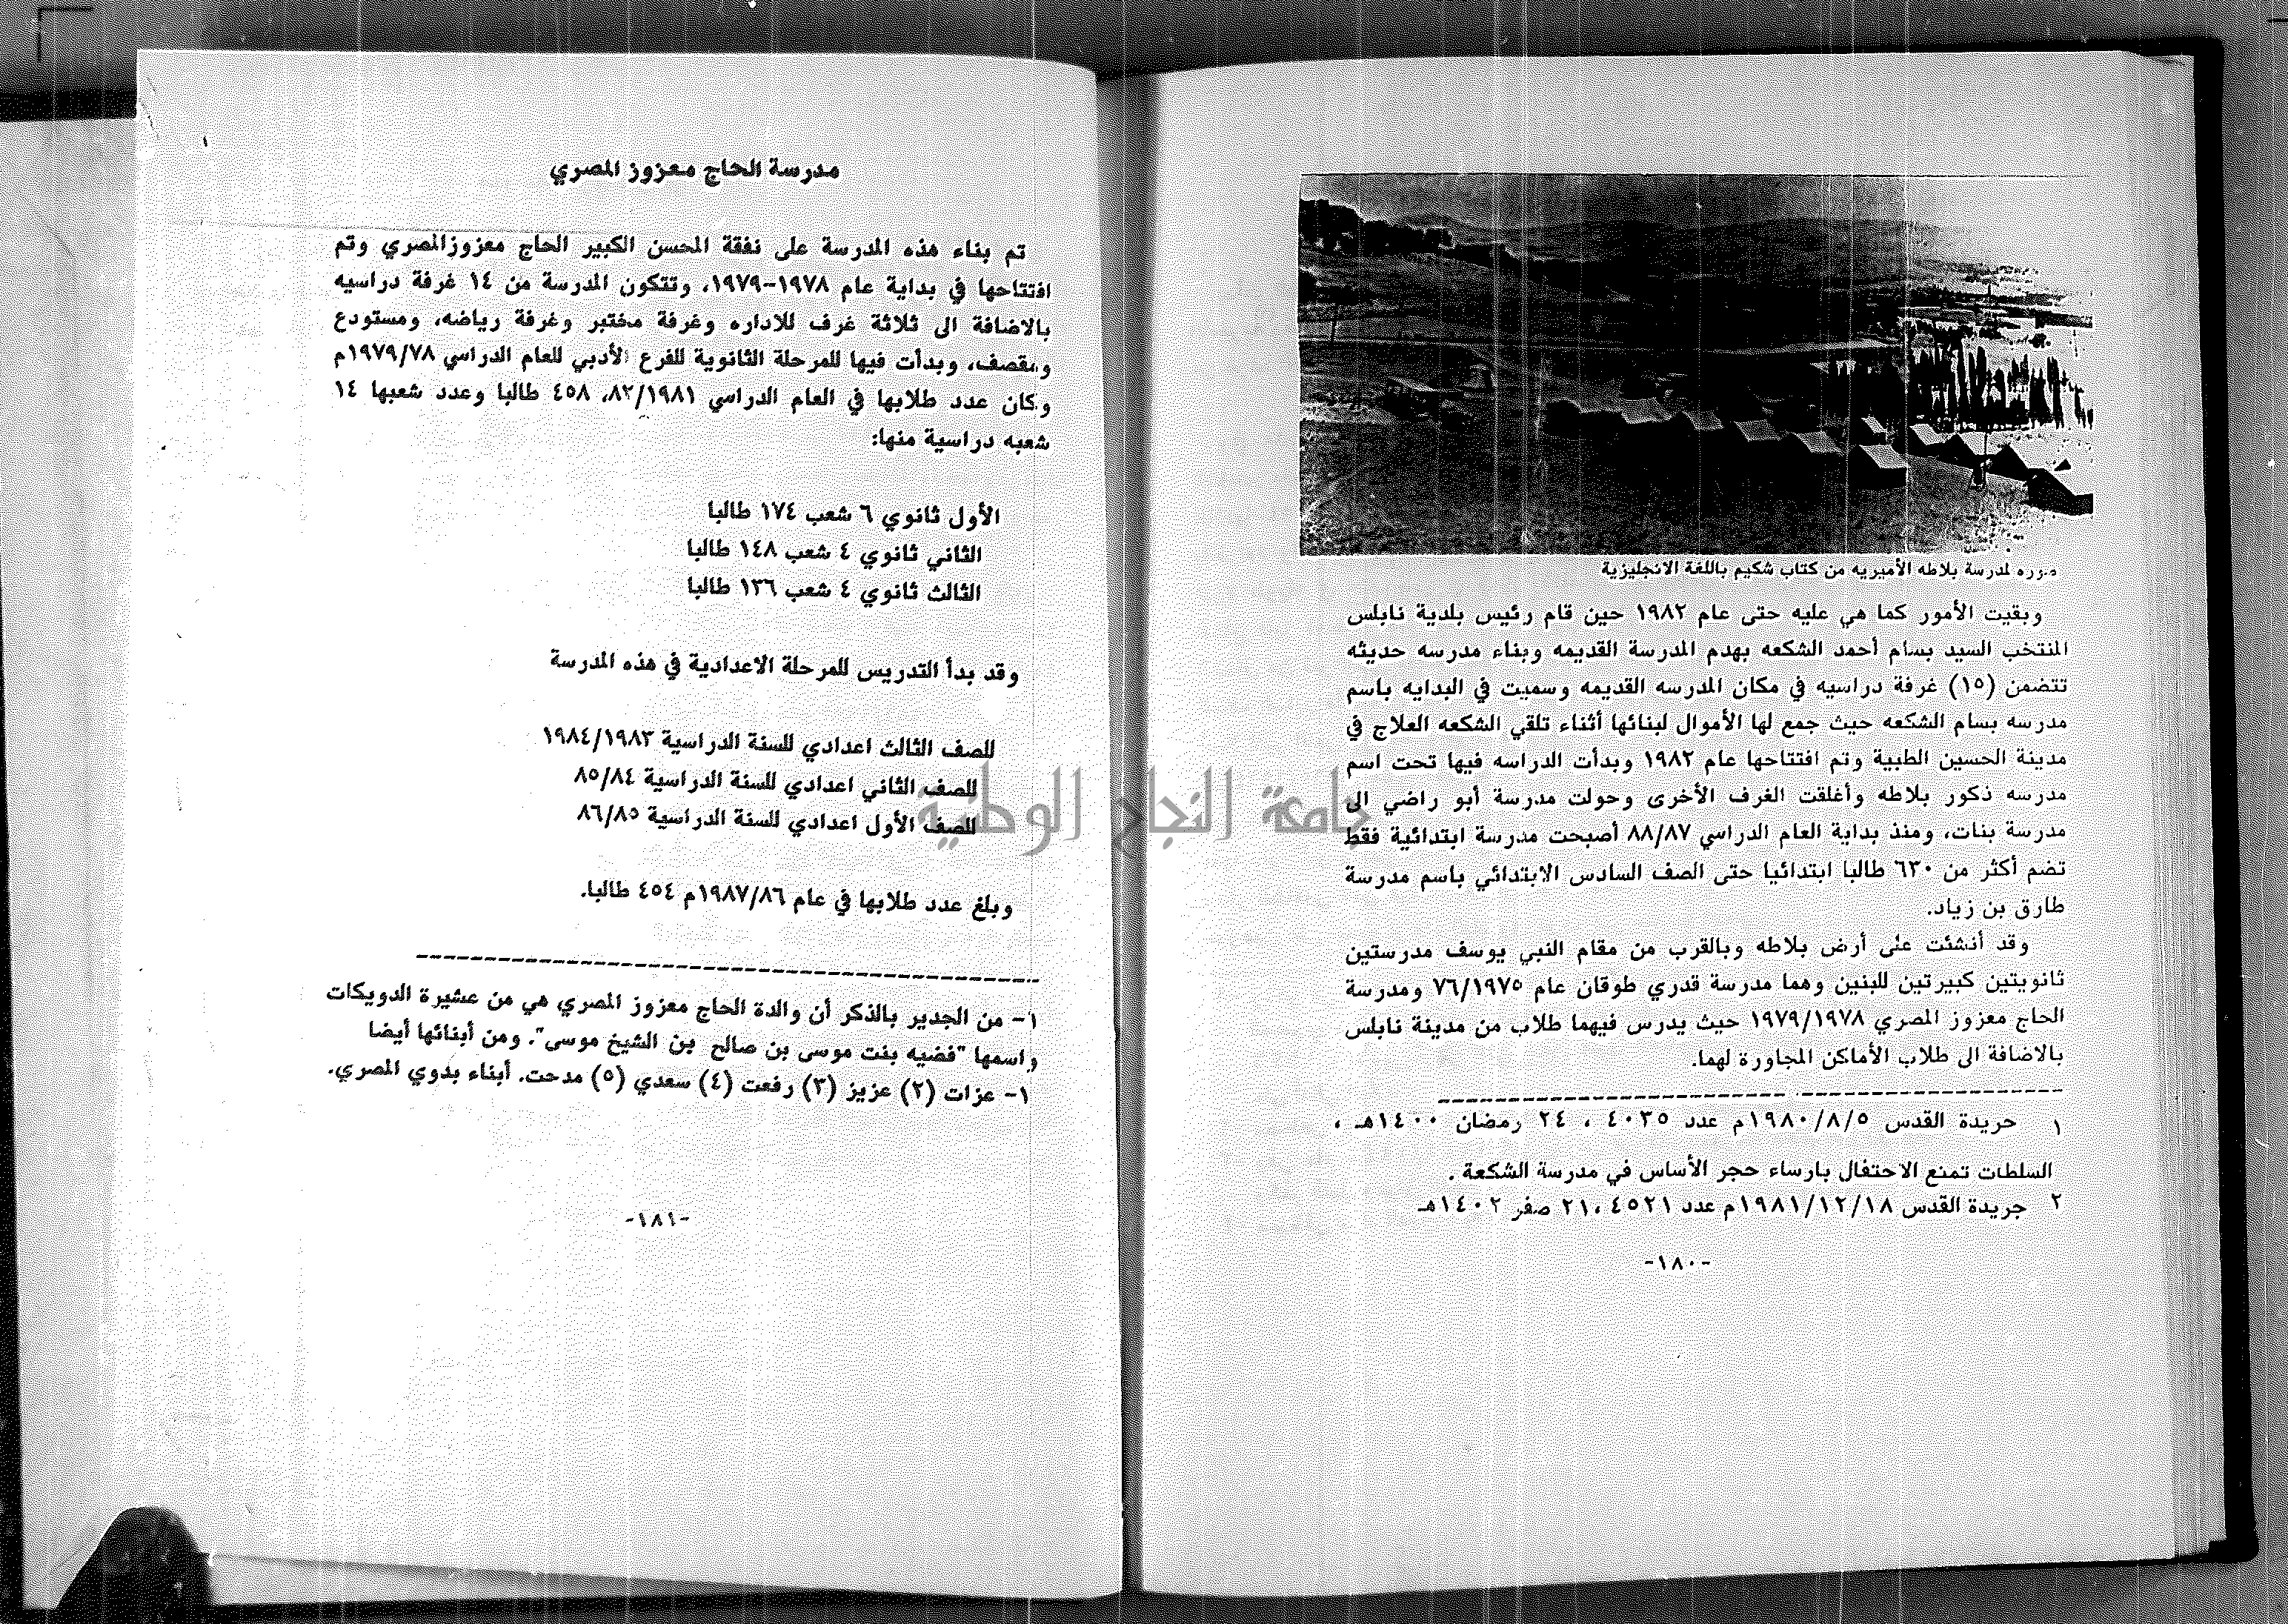 صوره لمدرسة بلاطه الأميريه من كتاب شكيم باللغة الانجليزية
وبقيت الأمور كما هي عليه حتى عام ١٩٨٢ حين قام رئيس بلدية نابلس
المنتخب السيد بسام أحمد الشكعه بهدم المدرسة القديمه وبناء مدرسه حديثه
تتضمن (١٥) غرفة دراسيه في مكان المدرسه القديمه وسميت في البدايه باسم
مدرسه بسام الشكعه حيث جمع لها الأموال لبنائها أثناء تلقي الشكعه العلاج في
مدينة الحسين الطبية وتم افتتاحها عام ١٩٨٢ وبدأت الدراسه فيها تحت اسم
مدرسه ذكور بلاطه وأغلقت الغرف الأخرى وحولت مدرسة أبو راضي الى
مدرسة بنات، ومنذ بداية العام الدراسي ٨٨/٨٧ أصبحت مدرسة ابتدائية فقط
تضم أكثر من ٦٣٠ طالبا ابتدائيا حتى الصف السادس الابتدائي باسم مدرسة
طارق بن زياد.
وقد أنشئت على أرض بلاطه وبالقرب من مقام النبي يوسف مدرستين
ثانويتين كبيرتين للبنين وهما مدرسة قدري طوقان عام ٧٦/١٩٧٥ ومدرسة
الحاج معزوز المصري ١٩٧٩/١٩٧٨ حيث يدرس فيهما طلاب من مدينة نابلس
بالاضافة الى طلاب الأماكن المجاورة لهما.
١ جريدة القدس ١٩٨٠/٨/٥م عدد ٤٠٣٥ ، ٢٤ رمضان ١٤٠٠هـ ،
السلطات تمنع الاحتفال بارساء حجر الأساس في مدرسة الشكعة .
٢ جريدة القدس ١٩٨١/١٢/١٨م عدد ٤٥٢١ ،٢١ صفر ١٤٠٢هـ
-١٨٠-
مدرسة الحاج معزوز المصري
تم بناء هذه المدرسة على نفقة المحسن الكبير الحاج معزوزالمصري وتم
افتتاحها في بداية عام ١٩٧٨-١٩٧٩، وتتكون المدرسة من ١٤ غرفة دراسيه
بالاضافة الى ثلاثة غرف للاداره وغرفة مختبر وغرفة رياضه، ومستودع
ومقصف، وبدأت فيها للمرحلة الثانوية للفرع الأدبي للعام الدراسي ١٩٧٩/٧٨م
وكان عدد طلابها في العام الدراسي ٨٢/١٩٨١، ٤٥٨ طالبا وعدد شعبها ١٤
شعبه دراسية منها:
الأول ثانوي ٦ شعب ١٧٤ طالبا
الثاني ثانوي ٤ شعب ١٤٨ طالبا
الثالث ثانوي ٤ شعب ١٣٦ طالبا
وقد بدأ التدريس للمرحلة الاعدادية في هذه المدرسة
للصف الثالث اعدادي للسنة الدراسية ١٩٨٤/١٩٨٣
للصف الثاني اعدادي للسنة الدراسية ٨٥/٨٤
للصف الأول اعدادي للسنة الدراسية ٨٦/٨٥
وبلغ عدد طلابها في عام ١٩٨٧/٨٦م ٤٥٤ طالبا.
١- من الجدير بالذكر أن والدة الحاج معزوز المصري هي من عشيرة الدويكات
واسمها "فضيه بنت موسى بن صالح بن الشيخ موسى". ومن أبنائها أيضا
١- عزات (٢) عزيز (٣) رفعت (٤) سعدي (٥) مدحت. أبناء بدوي المصري.
-١٨١-
جامعة النجاح الوطنية